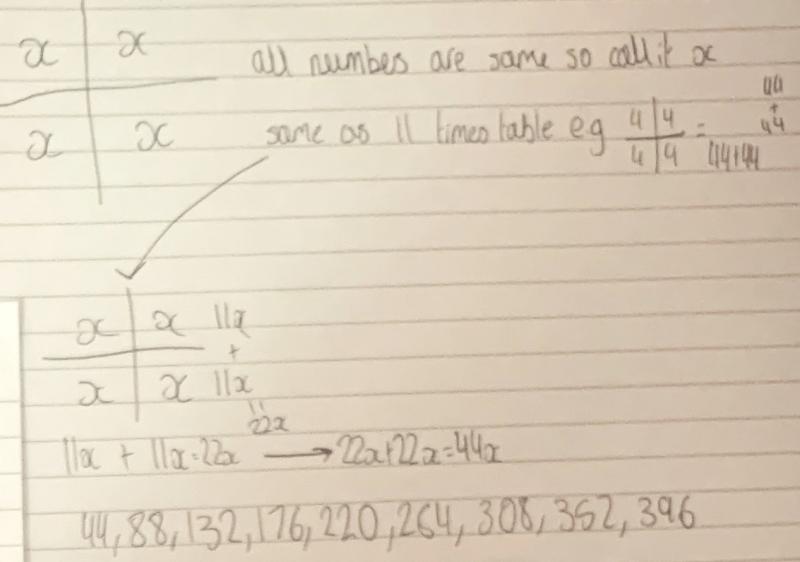 x x all numbers are same so call it x
x x same as 11 times table eg 4 4 = 44
4 4 + 44
44+44
x x 11x
+
x x 11x
"
22x
11x + 11x=22x → 22x+22x=44x
44, 88, 132, 176, 220, 264, 308, 352, 396